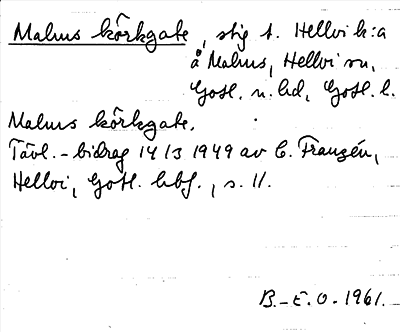 Malms kôrkgate, stig t. Hellvi k:a
å Malms, Hellvi sn,
Gotl. n. hd, Gotl. l.
Malms kôrkgate.
Tävl.-bidrag 14/3 1949 av C. Franzén,
Hellvi, Gotl. hbf., s. 11.
B.-E. O. 1961.